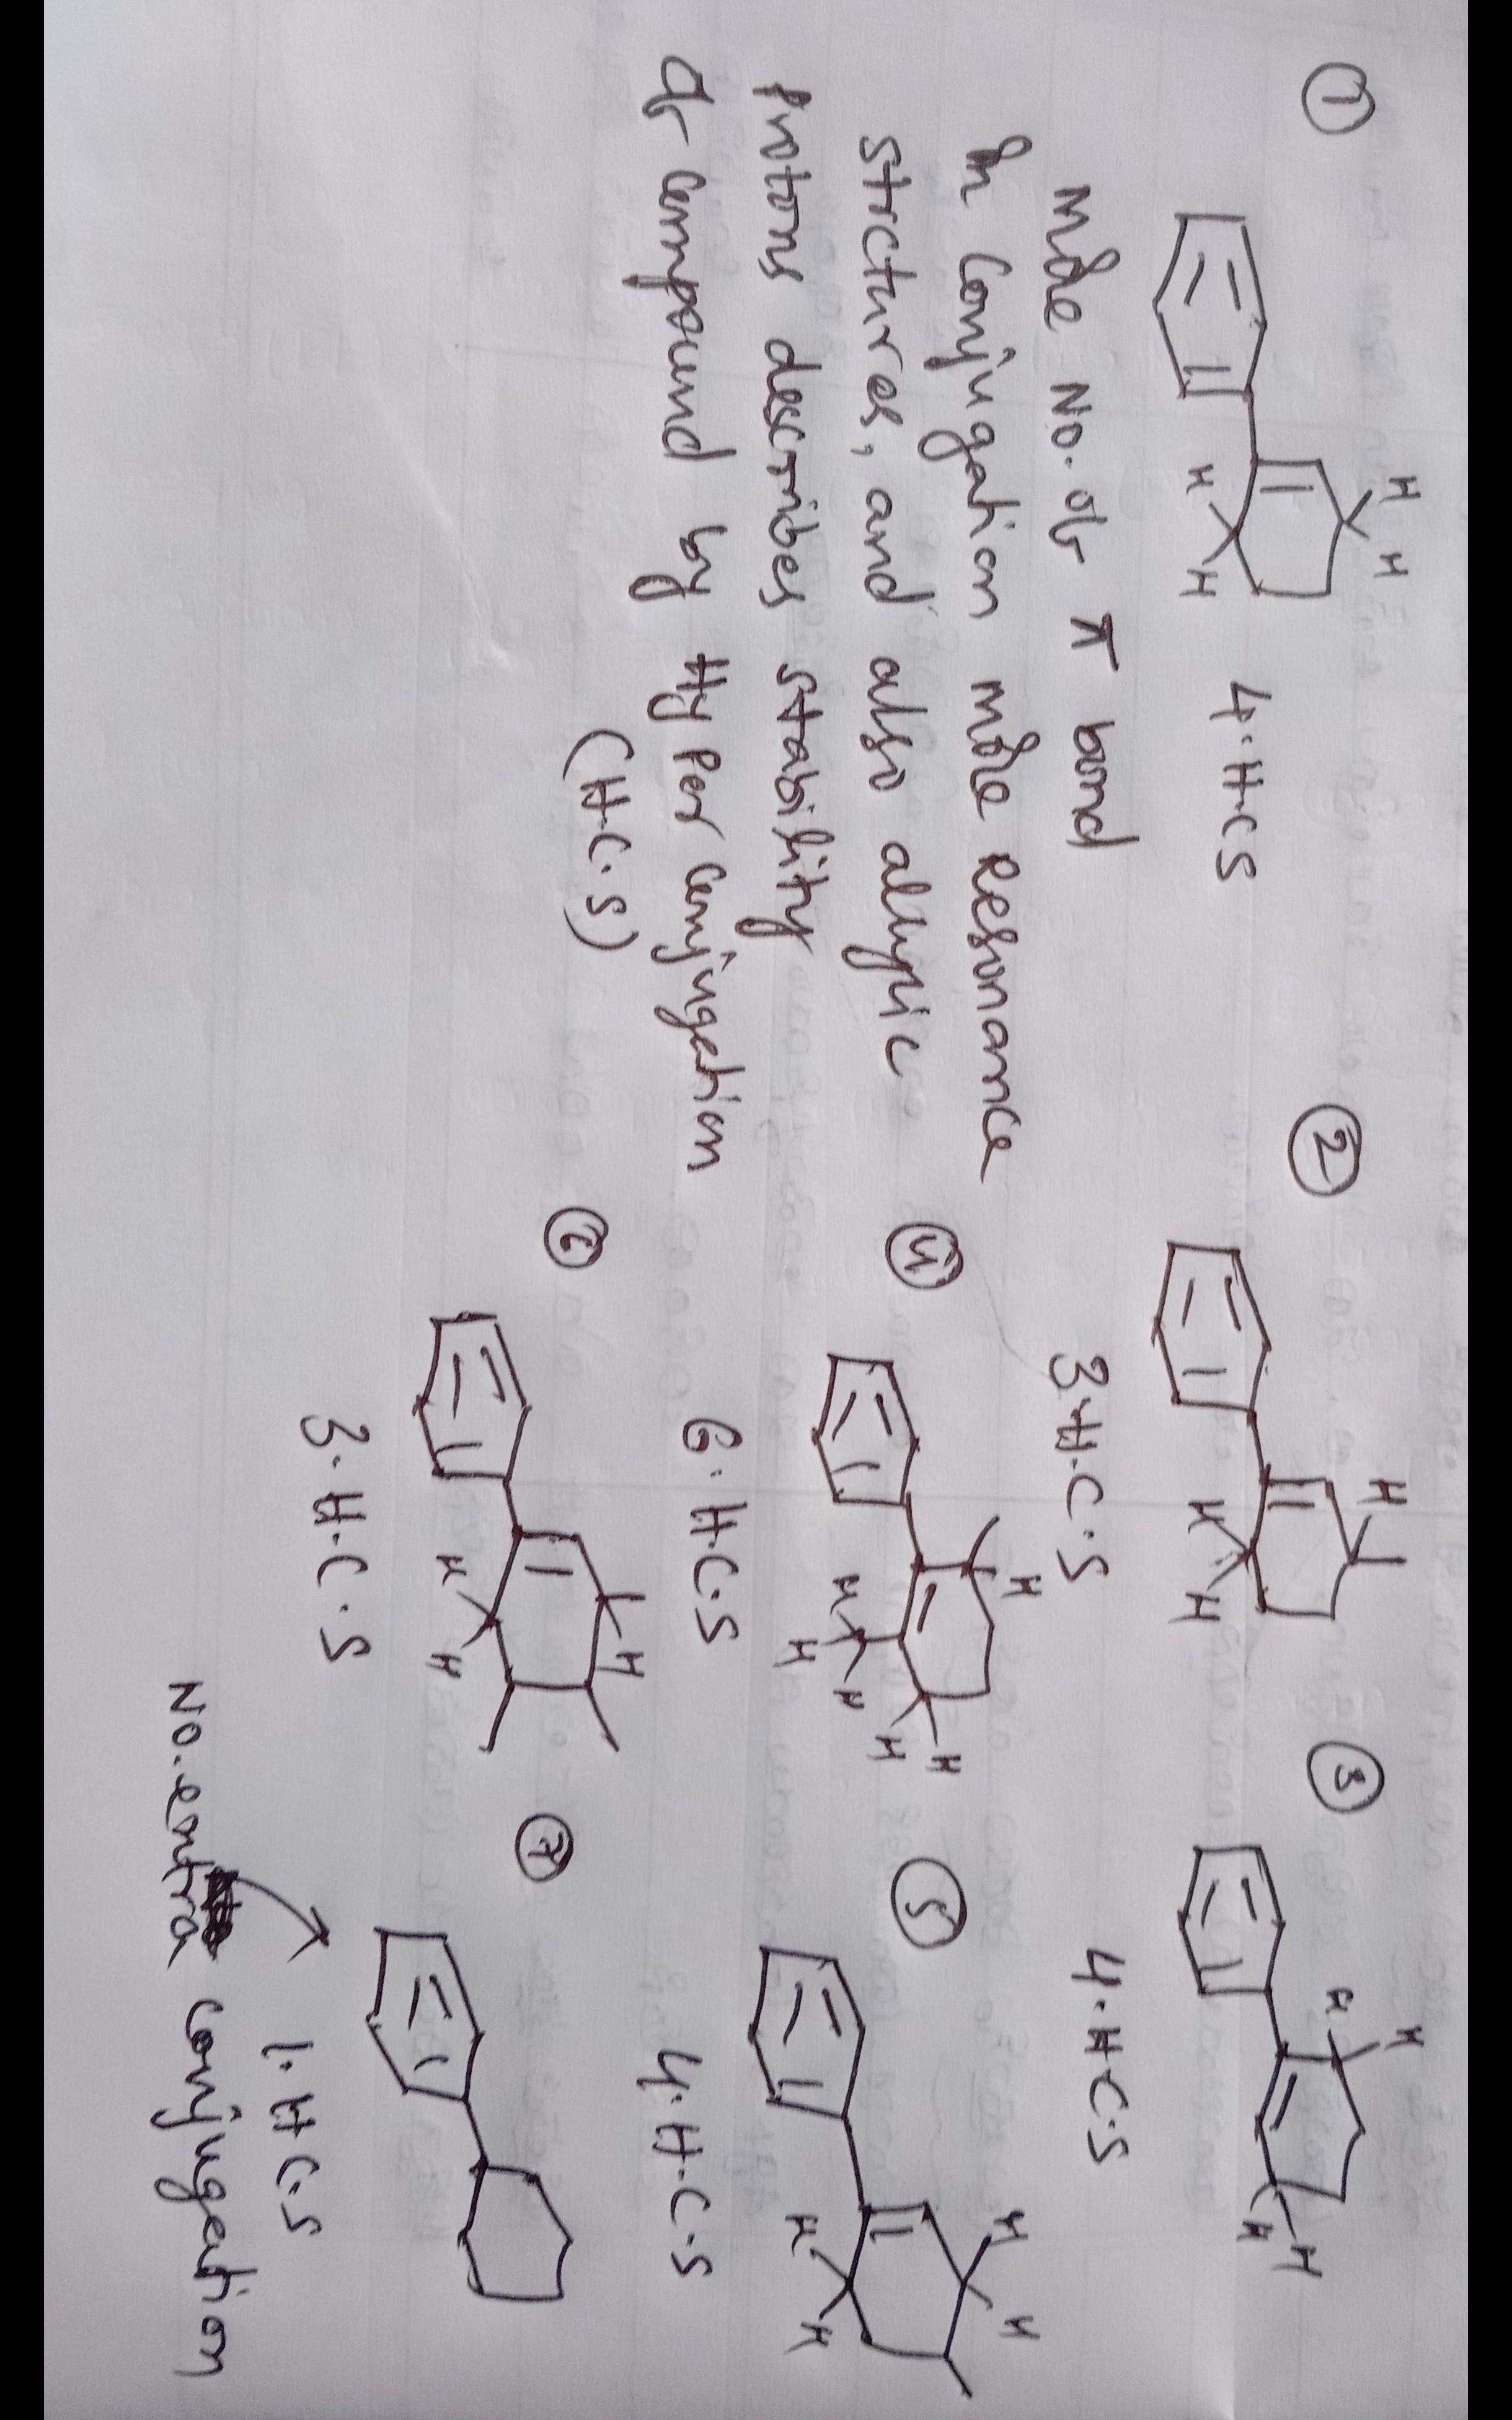 ①
H
H
H
H
4.H.CS
More No. of π bond
in Conjugation more Resonance
strctures, and also allylic
protons describes stability
of compound by Hyper conjugation
(H.C.S)
②
H
H
H
3.H.C.S
③
H
H
H
H
4.H.C.S
④
H
H
H
H
H
H
6.H.C.S
⑤
H
H
H
H
4.H.C.S
⑥
H
H
H
3.H.C.S
⑦
1.H.C.S
No.extra conjugation